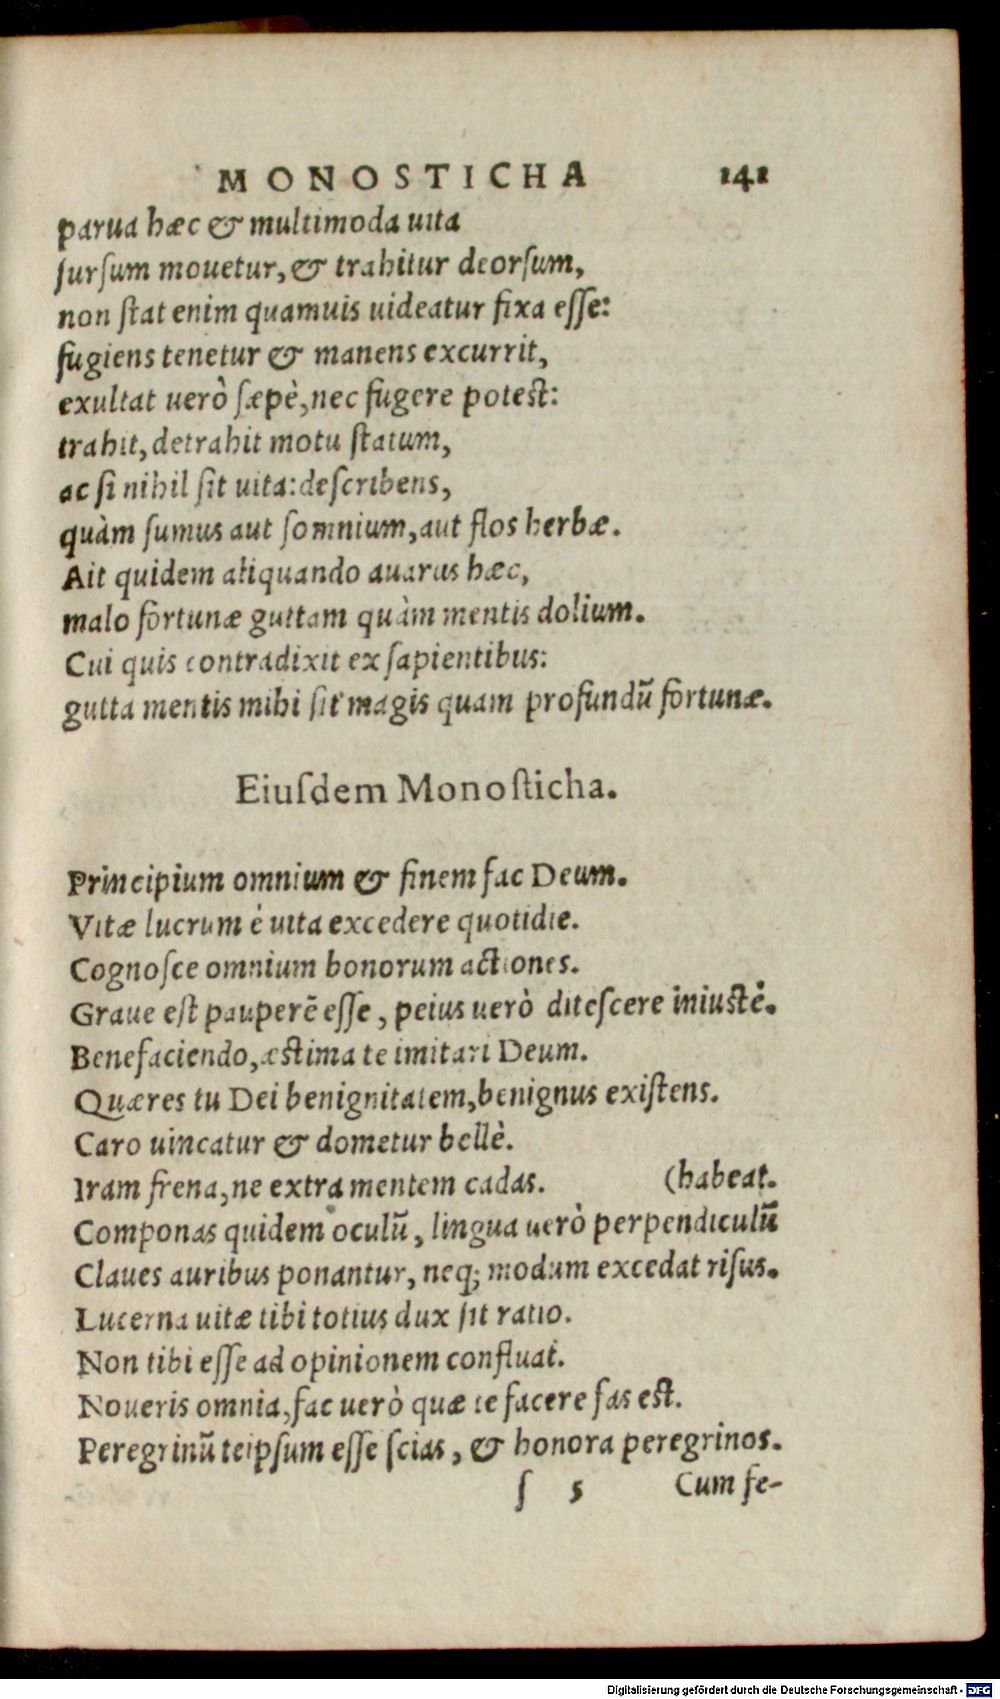 MONOSTICHA 141
parua hæc & multimoda uita
sursum mouetur, & trahitur deorsum,
non stat enim quamuis uideatur fixa esse:
fugiens tenetur & manens excurrit,
exultat uerò sæpè, nec fugere potest:
trahit, detrahit motu statum,
ac si nihil sit uita: describens,
quàm sumus aut somnium, aut flos herbæ.
Ait quidem aliquando auarus hæc,
malo fortunæ guttam quàm mentis dolium.
Cui quis contradixit ex sapientibus:
gutta mentis mihi sit magis quam profundū fortunæ.
Eiusdem Monosticha.
Principium omnium & finem fac Deum.
Vitæ lucrum è uita excedere quotidie.
Cognosce omnium bonorum actiones.
Graue est pauperē esse, peius uerò ditescere iniustè.
Benefaciendo, æstima te imitari Deum.
Quæres tu Dei benignitatem, benignus existens.
Caro uincatur & dometur bellè.
Iram frena, ne extra mentem cadas. (habeat.
Componas quidem oculū, lingua uerò perpendiculū
Claues auribus ponantur, neq; modum excedat risus.
Lucerna uitæ tibi totius dux sit ratio.
Non tibi esse ad opinionem confluat.
Noueris omnia, fac uerò quæ te facere fas est.
Peregrinū teipsum esse scias, & honora peregrinos.
s 5 Cum fe-
Digitalisierung gefördert durch die Deutsche Forschungsgemeinschaft - DFG